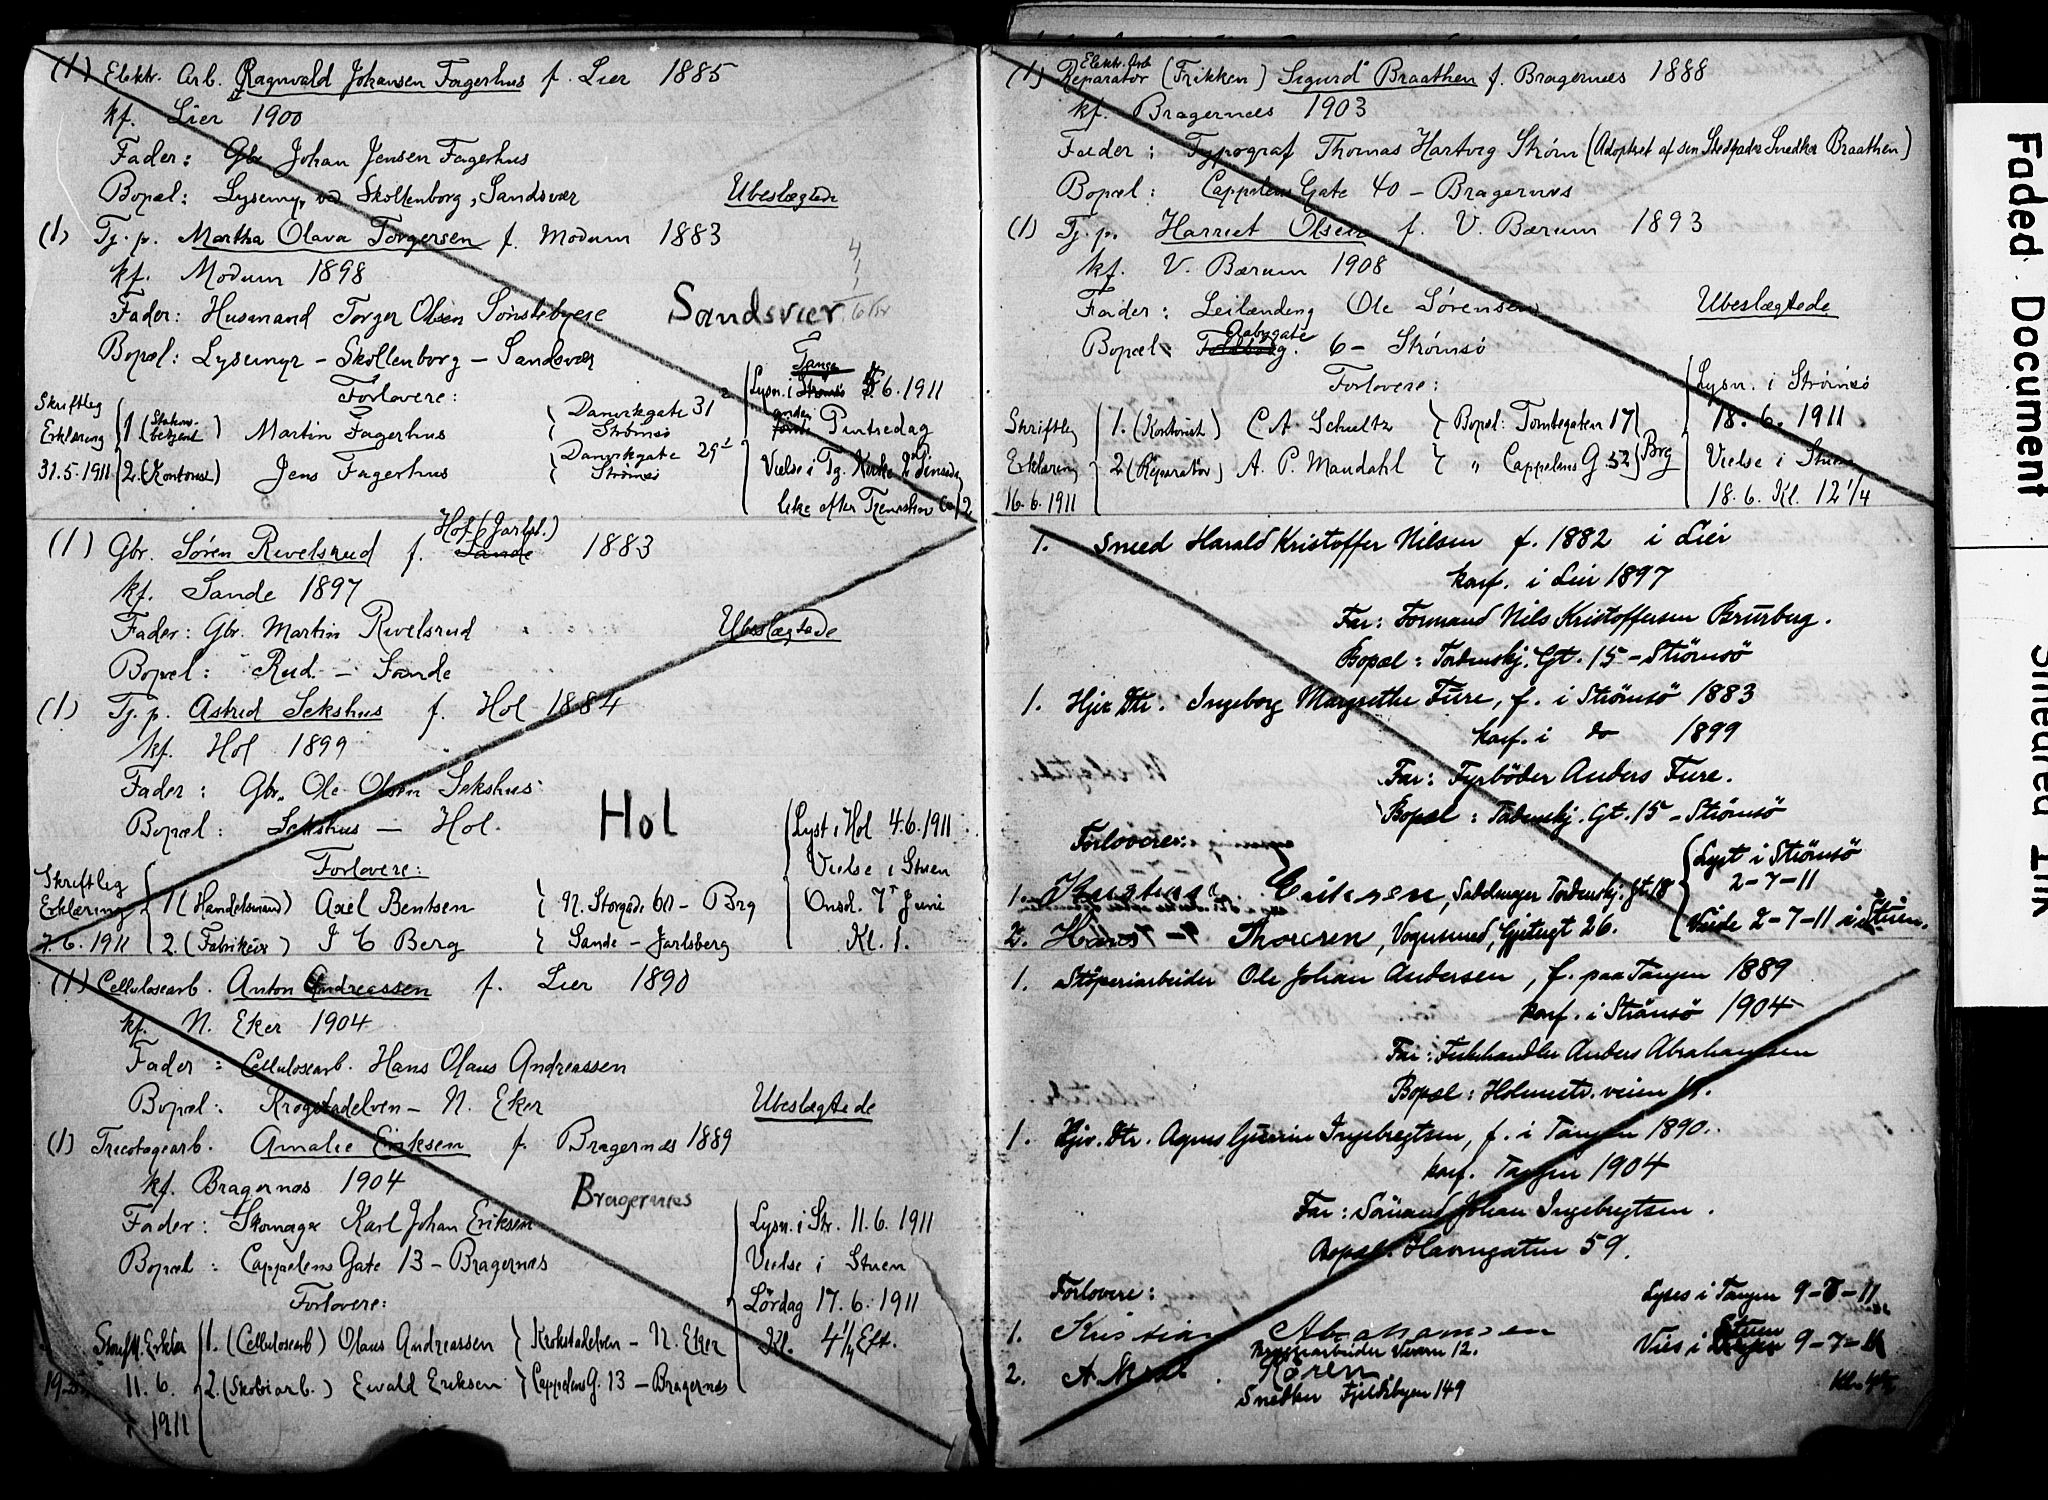 (1) Elektr. Arb. Ragnvald Johansen Fagerhus f. Lier 1885
kf. Lier 1900
Fader: Gbr Johan Jensen Fagerhus
Bopæl: Lysemyr, ved Skollenborg, Sandsvær
Ubeslægtede
(1) Tj. p. Martha Olava Torgersen f. Modum 1883
kf. Modum 1898
Fader: Husmand Torger Olsen
Sandsvær
Bopæl: Lysemyr - Skollenborg - Sandsvær
Forlovere:
Skriftlig Erklæring 31.5.1911
1 (Stationsbetjent) Martin Fagerhus
Danvikgate 31 Strømsø
2. (Kontorist) Jens Fagerhus
Danvikgate 29 Strømsø
Lysn. i Strømsø Tangen 6.1911
Pintsedag
(1) Gbr. Søren Rivelsrud f. Sande Hof (Jarlsb.) 1883
kf. Sande 1897
Fader: Gbr. Martin Rivelsrud
Ubeslægtede
Bopæl: Rud. - Sande
(1) Tj. p. Astrid Sekshus f. Hol 1884
kf. Hol 1899
Fader: Gbr. Ole Olsen Sekshus
Bopæl: Sekshus - Hol.
Hol
Forlovere:
Skriftlig Erklæring 7.6.1911
1 (Handelsmand) Axel Bentsen
N. Storgade 60 - Brg
2. (Fabrikeier) I C Berg
Sande - Jarlsberg
Lyst i Hol 4.6.1911
Vielse i Stuen
Onsd. 7 Juni
Kl. 1.
(1) Cellulosearb. Anton Andreassen f. Lier 1890
kf. N. Eker 1904
Fader: Cellulosearb. Hans Olaus Andreassen
Bopæl: Krogstadelven - N. Eker
Ubeslægtede
(1) Tricotagearb. Amalie Eriksen f. Bragernæs 1889
kf. Bragernæs 1904
Bragernæs
Fader: Skomager Karl Johan Eriksen
Bopæl: Cappelens Gate 13 - Bragernæs
Forlovere:
11.6. 1911
1. (Cellulosearb) Olaus Andreassen
Krokstadelven - N. Eker
2. (Skotøiarb.) Ewald Eriksen
Cappelens G. 13 - Bragernæs
Lysn. i Str. 11.6. 1911
Vielse i Stuen
Lördag 17.6.1911
Kl. 4 1/4 Eft.
(1) Elektr. Arb. Reparatør (Trikken) Sigurd Braathen f. Bragernæs 1888
kf. Bragernæs 1903
Fader: Typograf Thomas Hartvig Strøm (Adopteret af sin Stedfader Snedker Braathen)
Bopæl: Cappelens Gate 40 - Bragernæs
(1) Tj. p. Harriet Olsen f. V. Bærum 1893
kf. V. Bærum 1908
Fader: Leilænding Ole Sørensen
Ubeslægtede
Bopæl: Aabygate 6 - Strømsø
Forlovere:
Skriftlig Erklæring 16.6.1911
1. (Kontorist) C A Schultz
Bopæl: Tomtegaten 17
2 (Reparatør) A. P. Mandahl
" Cappelens G 52
Brg
Lysn. i Strømsø
18.6. 1911
Vielse i Stuen
18.6. Kl. 12 1/4
1. Smed Harald Kristoffer Nilsen f. 1882 i Lier
konf. i Lier 1897
Far: Formand Nils Kristoffersen Brurberg.
Bopæl: Tordenskj. Gt. 15 - Strömsö
1. Hjv. Dtr. Ingeborg Margrethe Fure, f. i Strömsö 1883
konf. i do 1899
Far: Fyrböder Anders Fure.
Bopæl: Tordenskj. Gt. 15 - Strömsö
Forlovere:
1. Eriksen, Tordenskj. Gt. 18
2. Hans Thoresen, Vognmand, 26.
Lyst i Strömsö
2-7-11
Viede 2-7-11 i Stuen.
1. Stöperiarbeider Ole Johan Andersen, f. paa Tangen 1889
konf. i Strömsö 1904
Far: Fiskehandler Anders Abrahamsen
Bopæl: veien 11.
1. Hjv. Dtr. Agnes Ingebregtsen, f. i Tangen 1890.
konf. Tangen 1904
Far: Sömand Johan Ingebregtsen.
Bopæl: Havnegaten 59.
Forlovere:
1. Kristian Abrahamsen
12.
2. Koren
Snekker Fjeldsbyen 149
Lyses i Tangen 9-7-11
Vies i Stuen 9-7-11
Faded Document
Smeared Ink